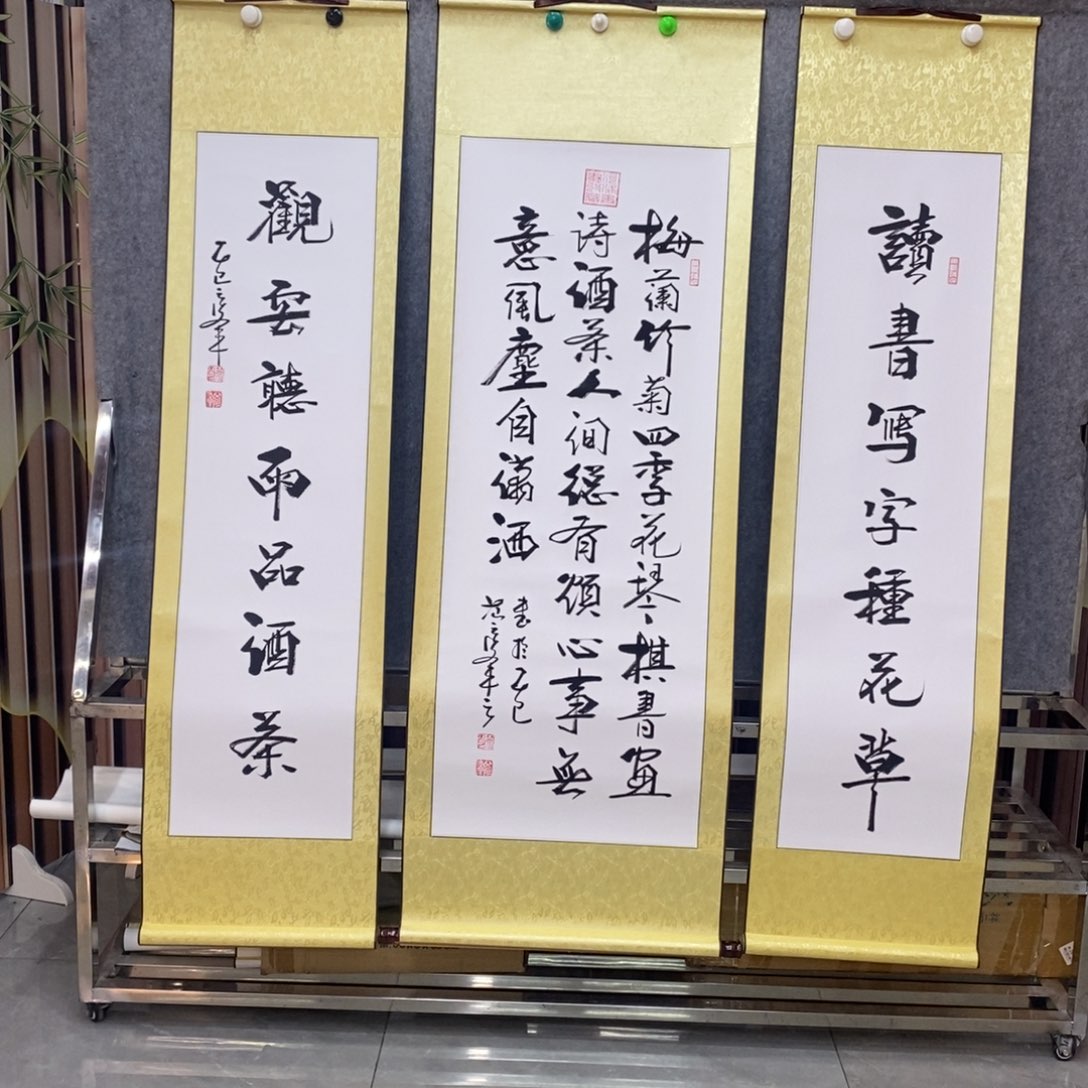 讀書寫字種花草
梅蘭竹菊四季花琴棋書畫
诗酒茶人间總有煩心事無
意風塵自瀟洒
書於乙巳
觀雲聽雨品酒茶
乙巳